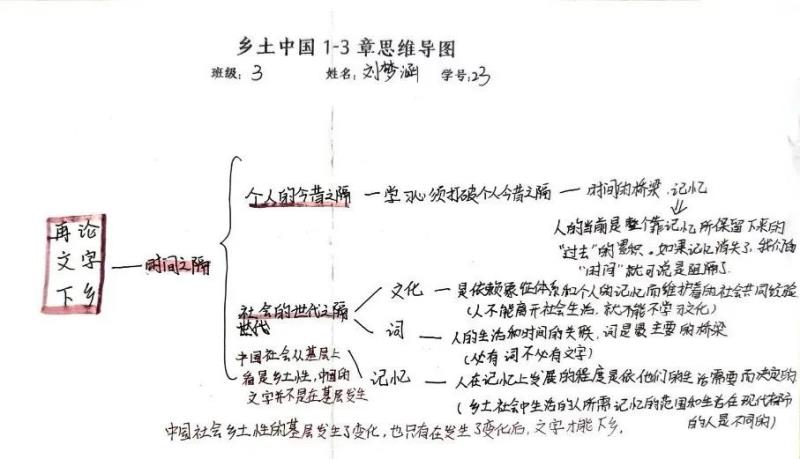 乡土中国1-3章思维导图
班级:3 姓名:刘梦涵 学号:23
再论
文字
下乡
时间之隔
个人的今昔之隔
学习必须打破个人今昔之隔
时间的桥梁.记忆
人的当前是整个靠记忆所保留下来的
"过去"的累积。如果记忆消失了,我们的
"时间"就可说是阻隔了.
社会的世代之隔
世代
文化
是依赖象征体系和个人的记忆而维护着的社会共同经验
(人不能离开社会生活,就不能不学习文化)
词
人的生活和时间的关联,词是最主要的桥梁
(必有词不必有文字)
中国社会从基层上
看是乡土性,中国的
文字并不是在基层发生
记忆
人在记忆上发展的程度是依他们的生活需要而决定的
(乡土社会中生活的人所需记忆的范围和生活在现代都市
的人是不同的)
中国社会乡土性的基层发生了变化,也只有在发生了变化后,文字才能下乡.